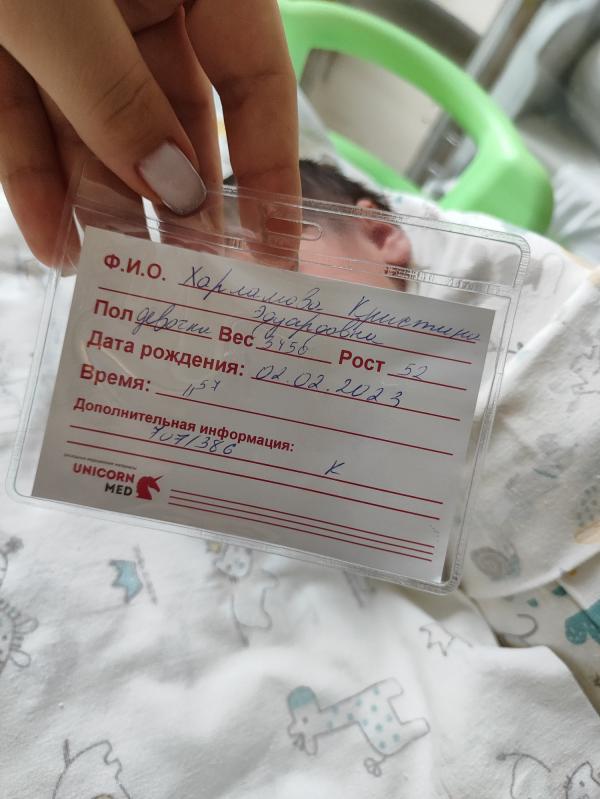 Ф.И.О. Харламова Кристина
Эдуардовна
Пол девочка Вес 3450 Рост 52
Дата рождения: 02.02.2023
Время: 11 57
Дополнительная информация:
707/386 К
UNICORN
MED